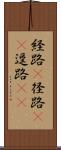 経路 径路
逕路